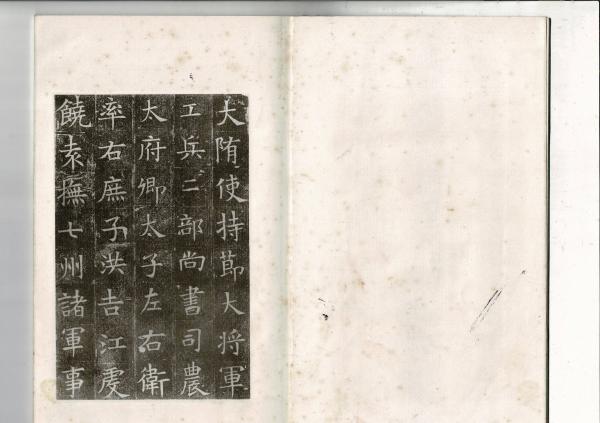 大隋使持節大將軍
工兵二部尚書司農
太府卿太子左右衛
率右庶子洪吉江虔
饒袁撫七州諸軍事